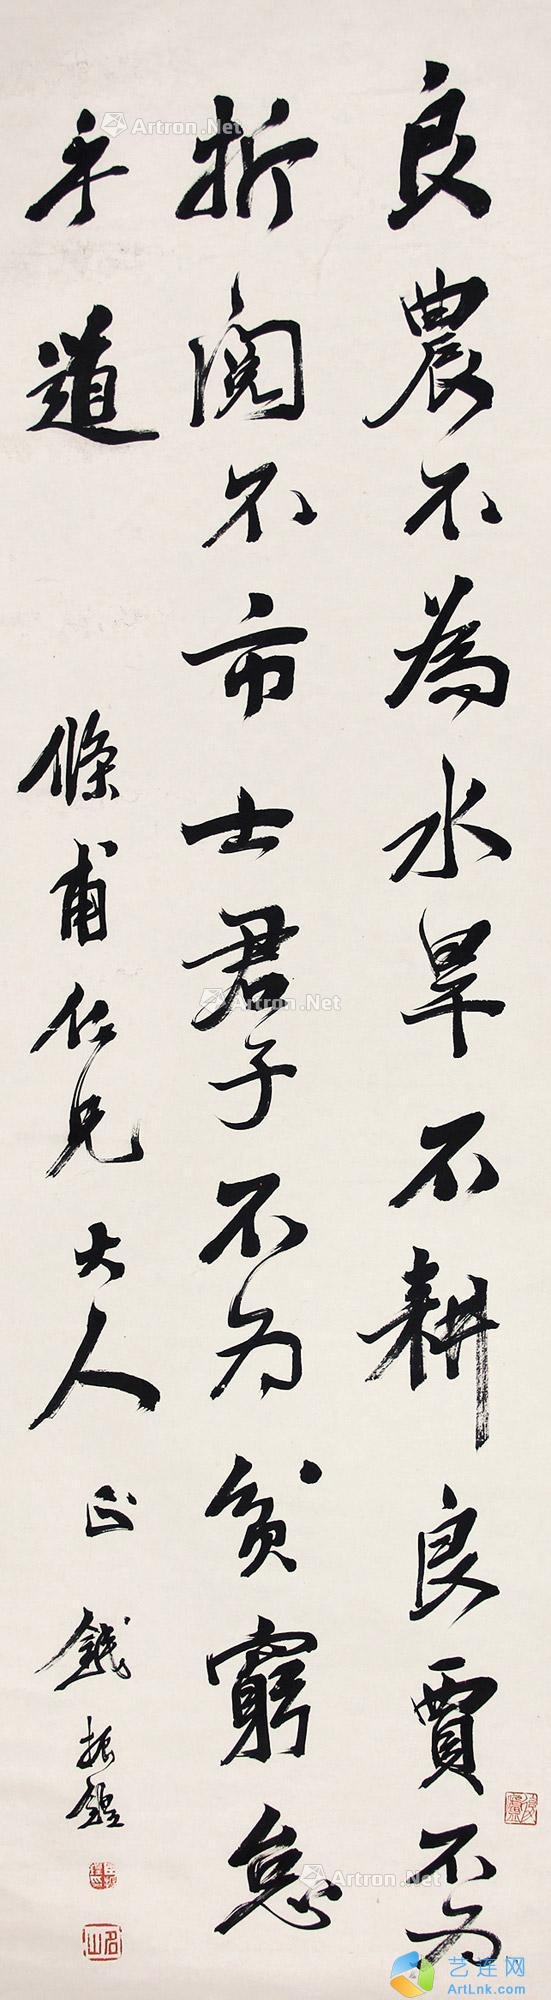 良農不為水旱不耕良賈不为
折閱不市士君子不为貧窮怠
乎道
條甫仁兄大人正錢振鍠
名山
Artron.Net
Artron.Net
Artron.Net
Artron.Net
艺连网
ArtLnk.com